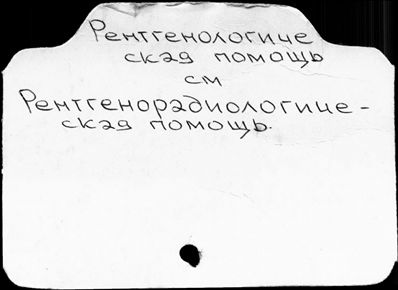 Рентгенологиче
ская помощь
см
Рентгенорадиологиче-
ская помощь.